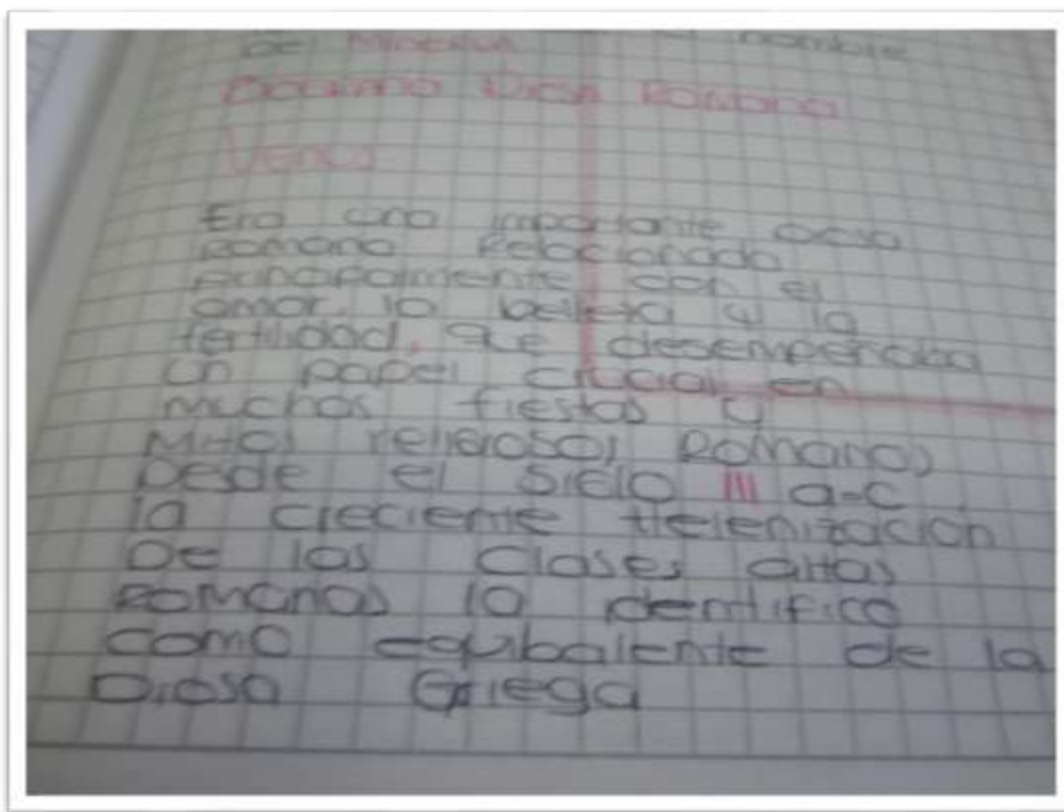 De Minerva nombre
Diosa Romana
Venus
Era una importante diosa
Romana Relacionada
principalmente con el
amor, la belleza y la
fertilidad, que desempeñaba
un papel crucial en
muchas fiestas y
Mitos religiosos Romanos)
Desde el Siglo III a-C.
la creciente Helenización
De las Clases altas
Romanas la identifico
Como equibalente de la
Diosa Griega